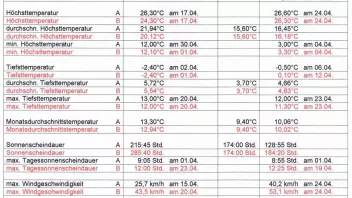 Höchsttemperatur A 26,30°C am 17.04. 26,60°C am 24.04.
Höchsttemperatur B 24,30°C am 17.04. 24,30°C am 24.04.
durchschn. Höchsttemperatur A 21,94°C 15,60°C 16,45°C
durchschn. Höchsttemperatur B 20,12°C 15,60°C 16,18°C
min. Höchsttemperatur A 12,00°C am 30.04. 3,00°C am 04.04.
min. Höchsttemperatur B 12,00°C am 01.04. 3,30°C am 04.04.
Tiefsttemperatur A -2,40°C am 02.04. -0,50°C am 06.04.
Tiefsttemperatur B -2,40°C am 01.04. 0,10°C am 12.04.
durchschn. Tiefsttemperatur A 5,72°C 3,70°C 4,66°C
durchschn. Tiefsttemperatur B 5,54°C 3,70°C 4,83°C
max. Tiefsttemperatur A 13,00°C am 20.04. 12,00°C am 23.04.
max. Tiefsttemperatur B 12,00°C am 20.04. 11,30°C am 23.04.
Monatsdurchschnittstemperatur A 13,30°C 9,40°C 10,06°C
Monatsdurchschnittstemperatur B 12,94°C 9,40°C 10,02°C
Sonnenscheindauer A 215:45 Std. 174:00 Std. 128:55 Std.
Sonnenscheindauer B 285:40 Std. 174:00 Std. 184:20 Std.
max. Tagessonnenscheindauer A 9:05 Std. am 01.04. 8:55 Std. am 01.04.
max. Tagessonnenscheindauer B 12:00 Std. am 23.04. 12:25 Std. am 19.04.
max. Windgeschwindigkeit A 25,7 km/h am 15.04. 40,2 km/h am 24.04.
max. Windgeschwindigkeit B 43,5 km/h am 20.04. 53,1 km/h am 24.04.